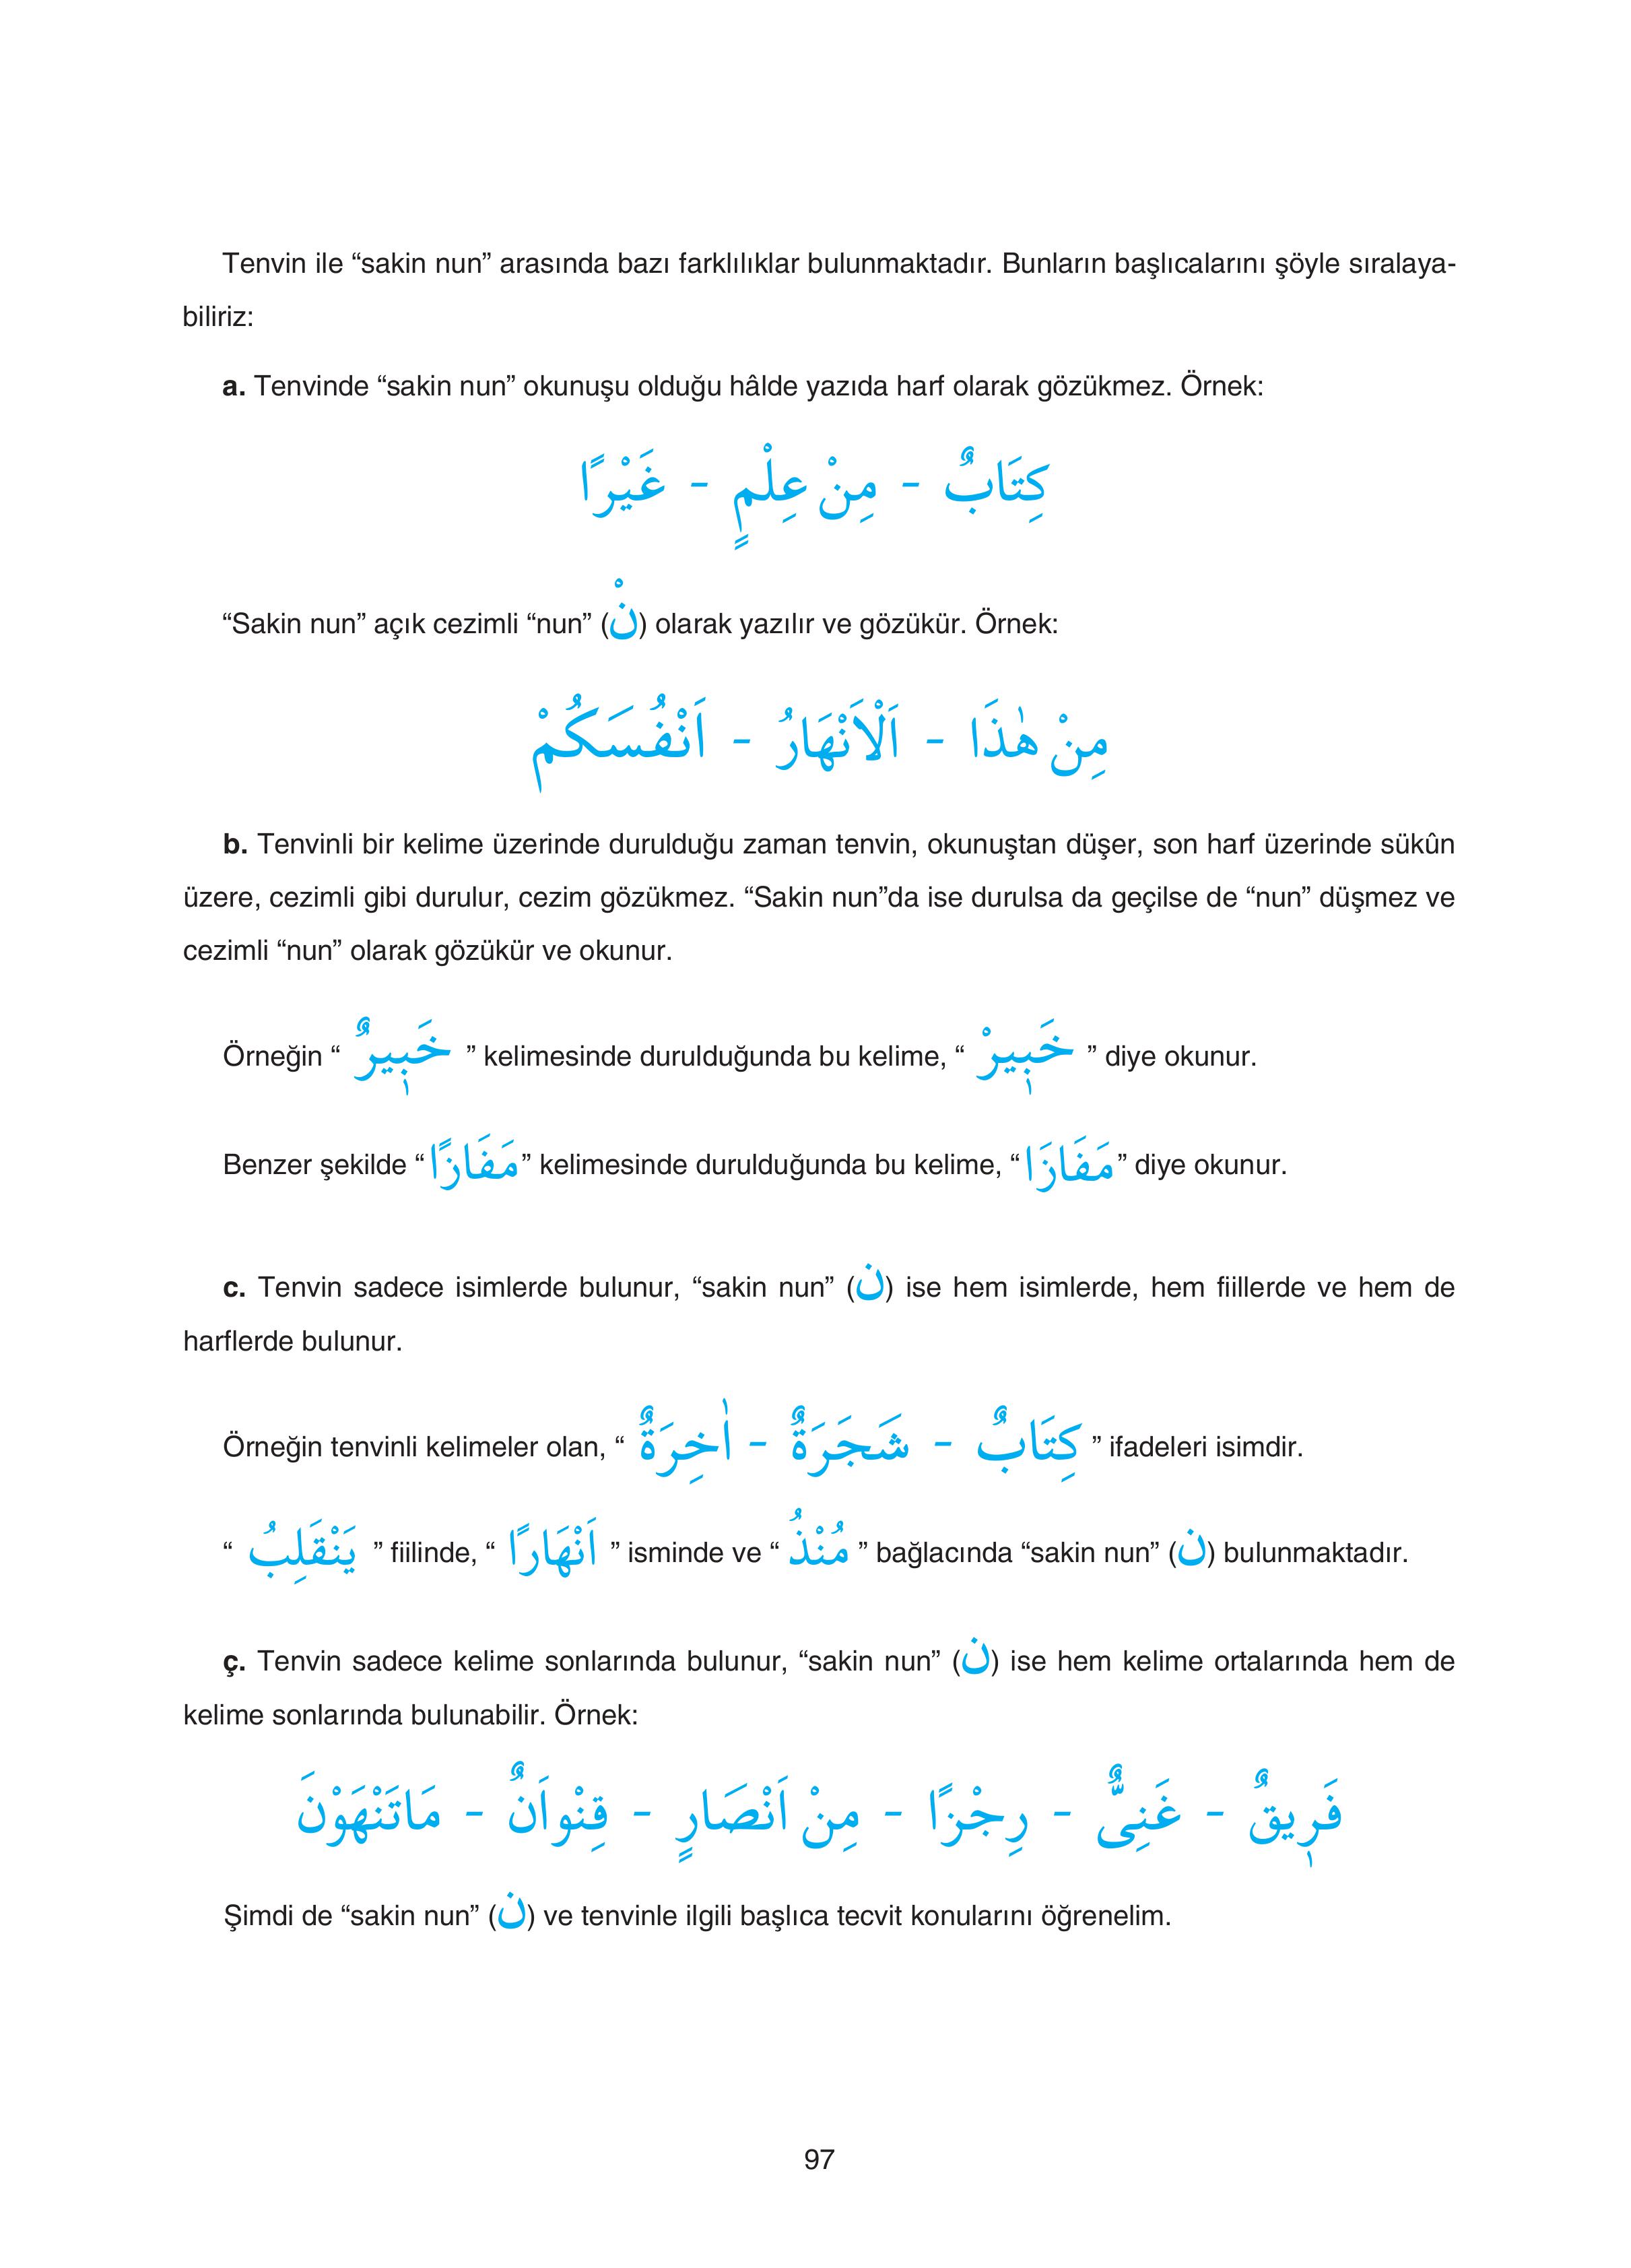 Tenvin ile “sakin nun” arasında bazı farklılıklar bulunmaktadır. Bunların başlıcalarını şöyle sıralaya-
biliriz:
a. Tenvinde “sakin nun” okunuşu olduğu hâlde yazıda harf olarak gözükmez. Örnek:
كِتَابٌ - مِنْ عِلْمٍ - غَيْرًا
“Sakin nun” açık cezimli “nun” (نْ) olarak yazılır ve gözükür. Örnek:
مِنْ هٰذَا - اَلْاَنْهَارُ - اَنْفُسَكُمْ
b. Tenvinli bir kelime üzerinde durulduğu zaman tenvin, okunuştan düşer, son harf üzerinde sükûn
üzere, cezimli gibi durulur, cezim gözükmez. “Sakin nun”da ise durulsa da geçilse de “nun” düşmez ve
cezimli “nun” olarak gözükür ve okunur.
Örneğin “ خَبٖيرٌ ” kelimesinde durulduğunda bu kelime, “ خَبٖيرْ ” diye okunur.
Benzer şekilde “مَفَازًا” kelimesinde durulduğunda bu kelime, “مَفَازَا” diye okunur.
c. Tenvin sadece isimlerde bulunur, “sakin nun” (ن) ise hem isimlerde, hem fiillerde ve hem de
harflerde bulunur.
Örneğin tenvinli kelimeler olan, “ كِتَابٌ - شَجَرَةٌ - اٰخِرَةٌ ” ifadeleri isimdir.
“ يَنْقَلِبُ ” fiilinde, “ اَنْهَارًا ” isminde ve “ مُنْذُ ” bağlacında “sakin nun” (ن) bulunmaktadır.
ç. Tenvin sadece kelime sonlarında bulunur, “sakin nun” (ن) ise hem kelime ortalarında hem de
kelime sonlarında bulunabilir. Örnek:
فَرٖيقٌ - غَنِىٌّ - رِجْزًا - مِنْ اَنْصَارٍ - قِنْوَانٌ - مَاتَنْهَوْنَ
Şimdi de “sakin nun” (ن) ve tenvinle ilgili başlıca tecvit konularını öğrenelim.
97